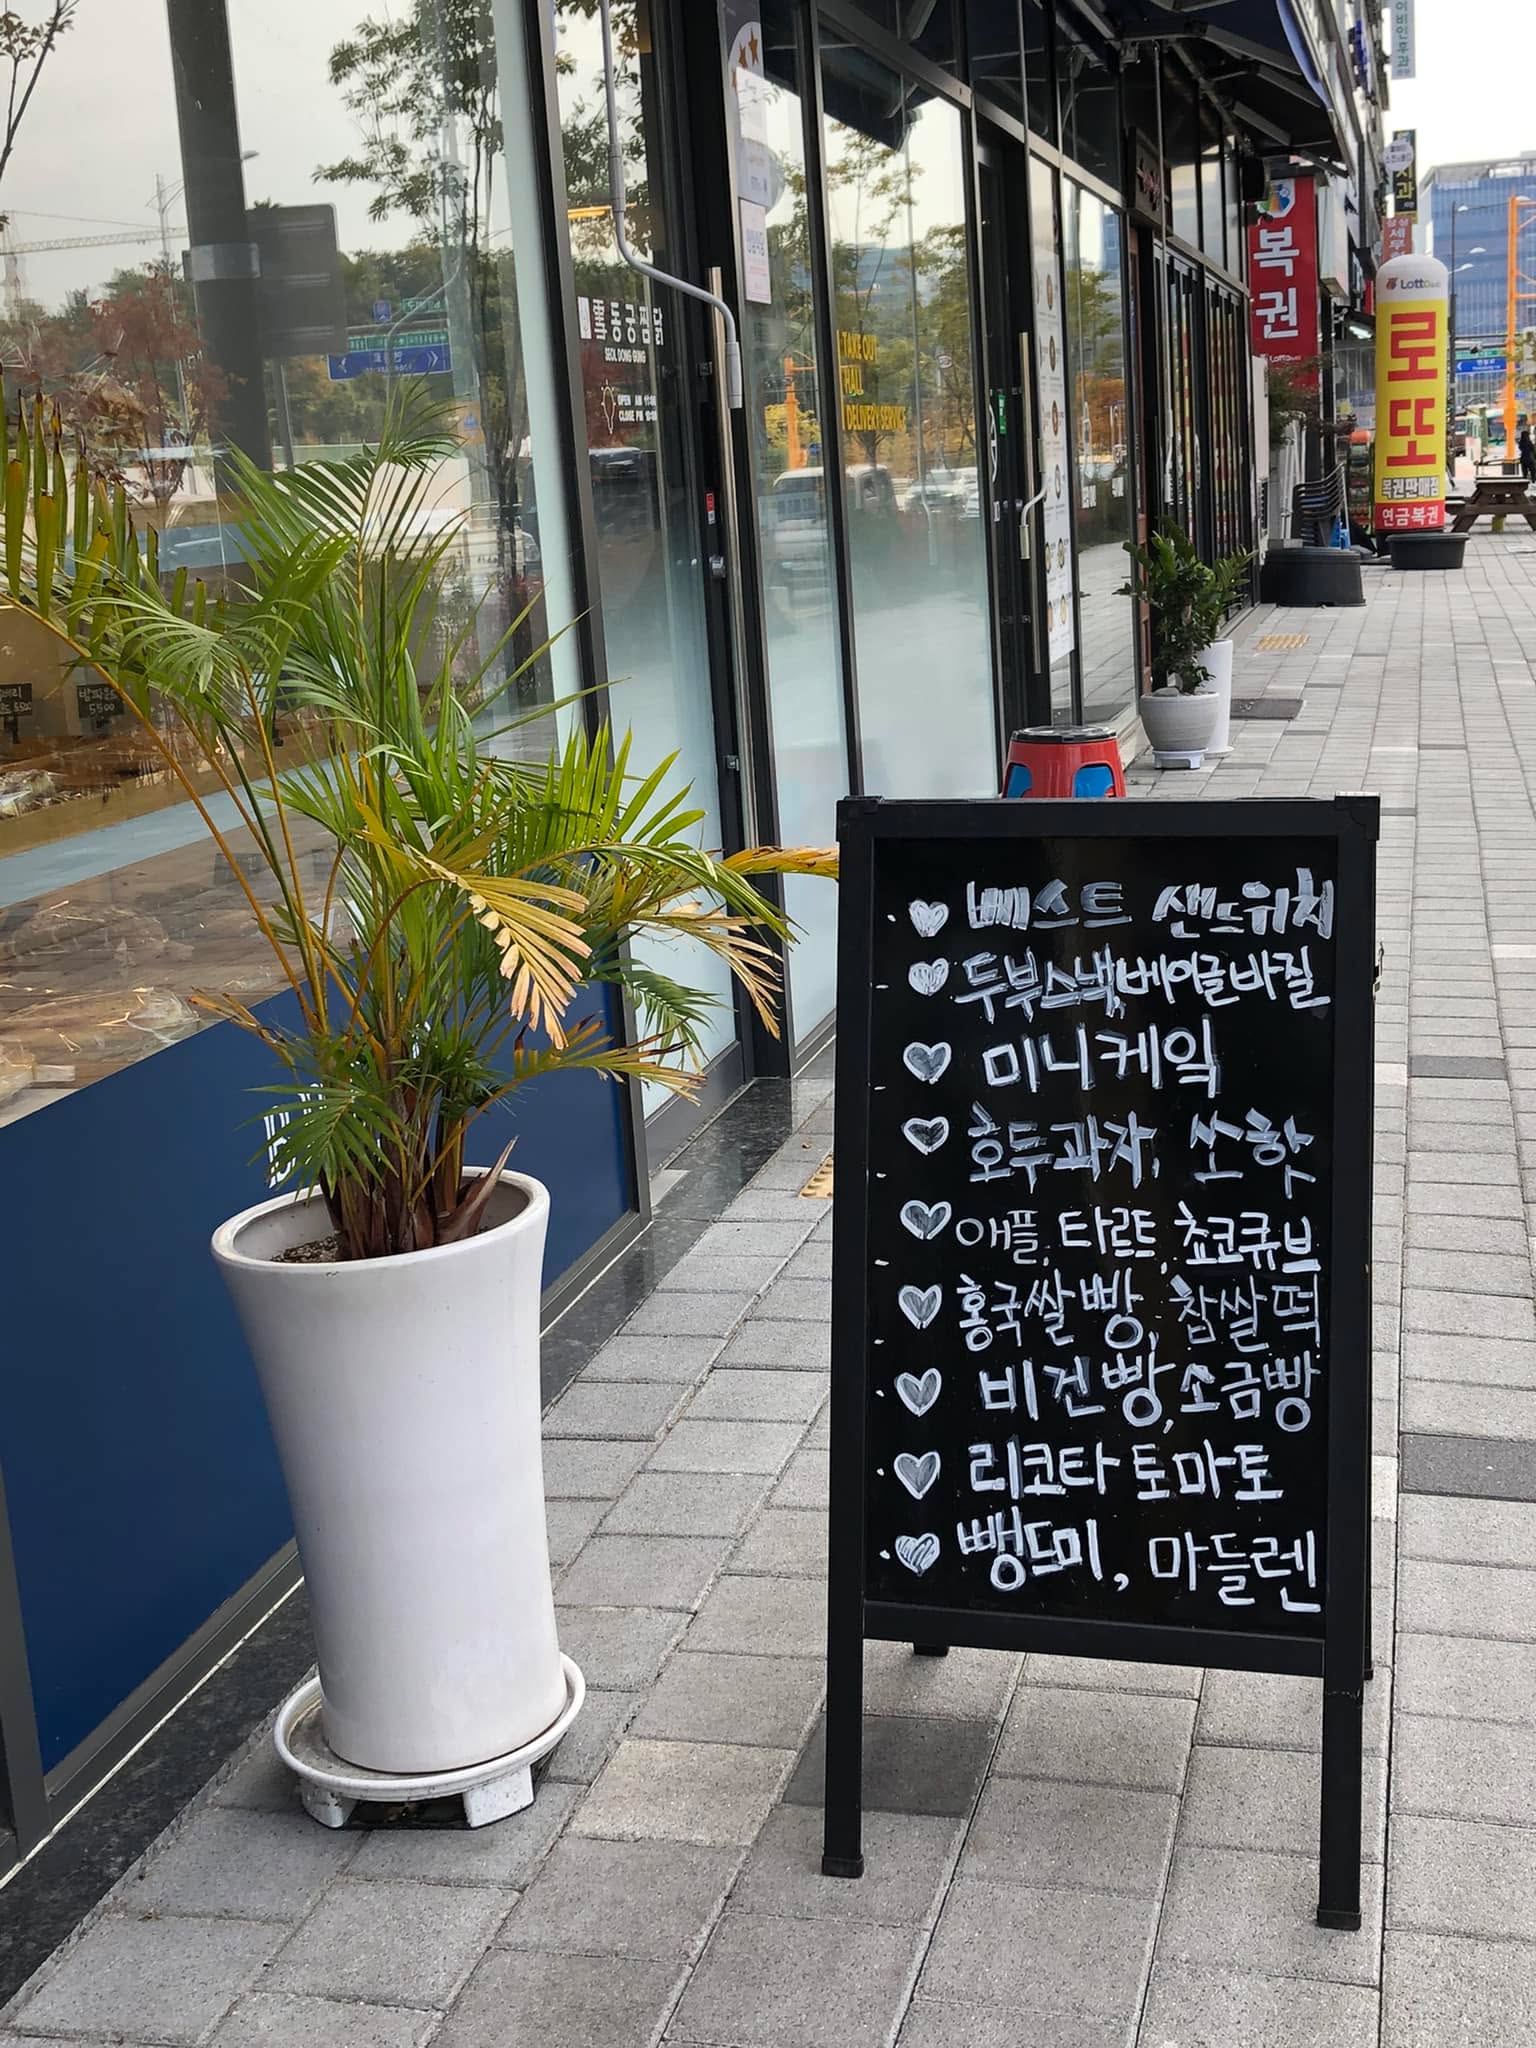 복권
LottO
로또
복권판매점
연금복권
동궁찜닭
SEOL DONG GUNG
OPEN AM 11:00
TAKE OUT
HALL
DELIVERY SERVICE
밤파운드
5500
♥ 뻬스트 샌드위치
♥ 두부스낵, 베이글바질
♥ 미니케익
♥ 호두과자, 쏘핫
♥ 애플, 타르트, 쵸코큐브
♥ 홍국쌀빵, 찹쌀떡
♥ 비건빵, 소금빵
♥ 리코타토마토
♥ 뺑드미, 마들렌